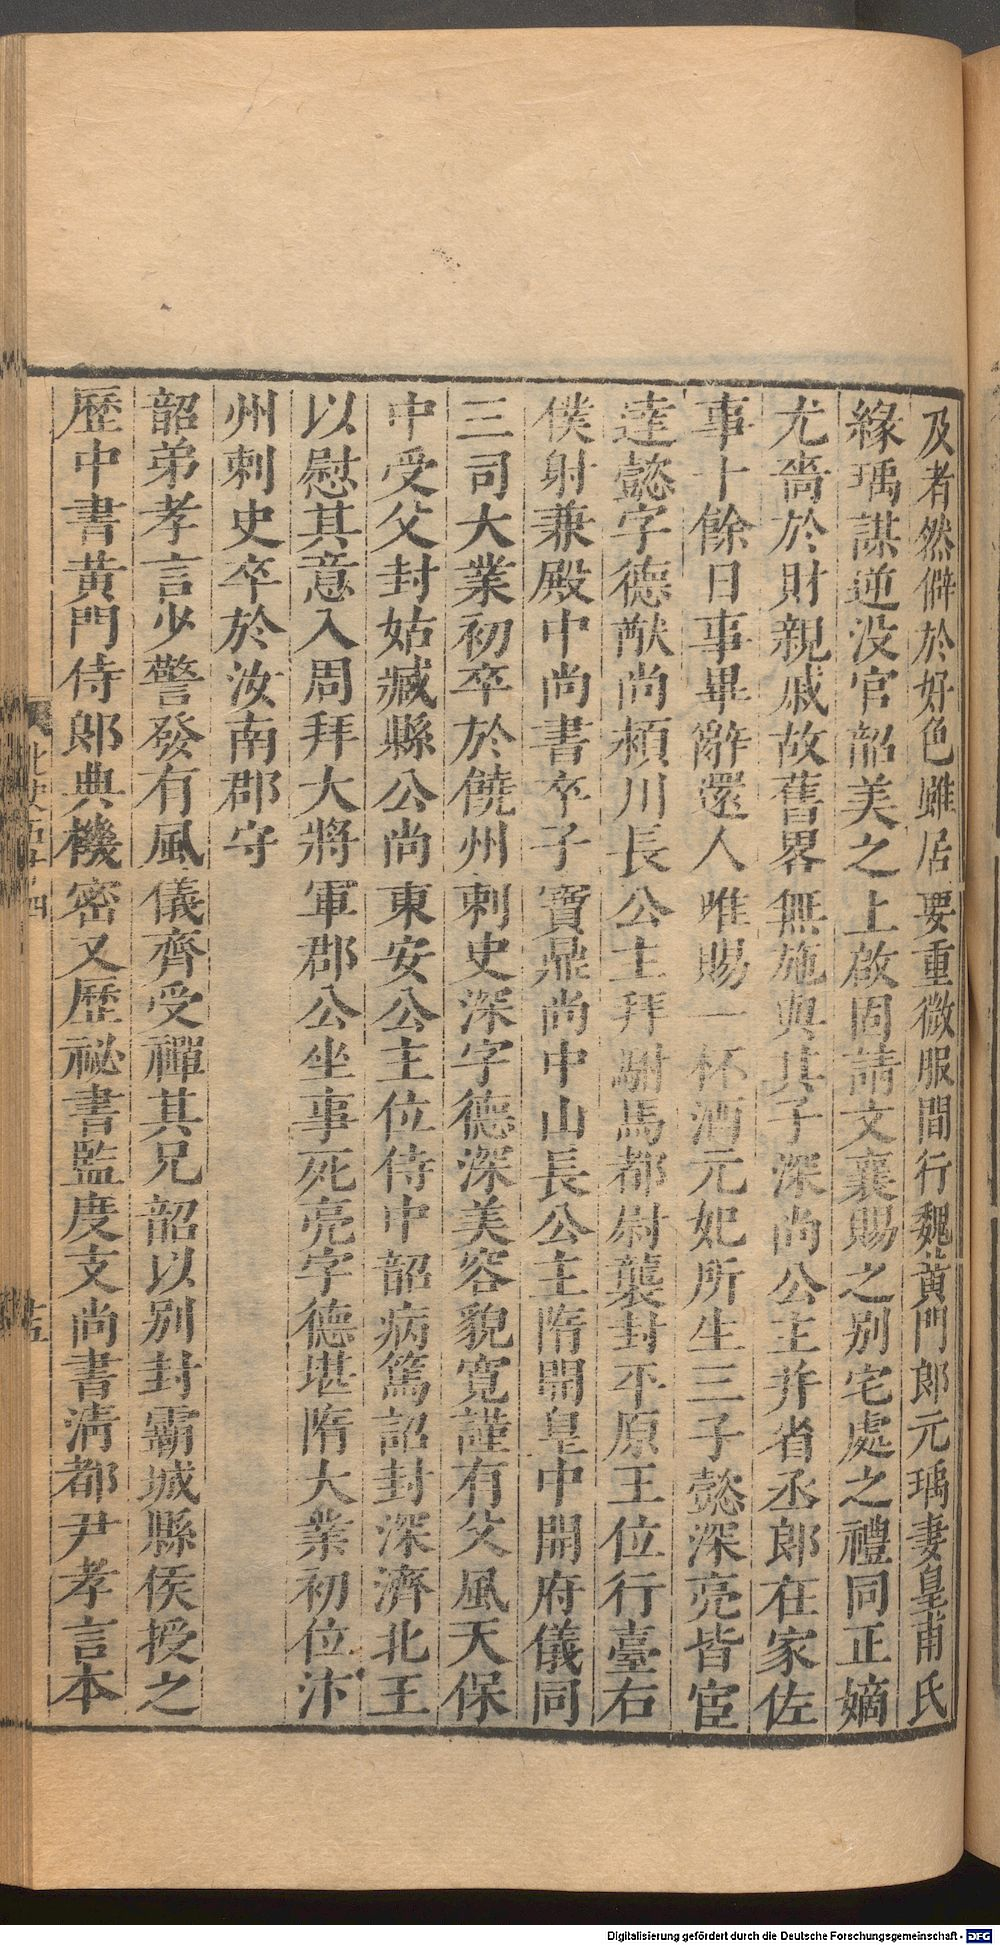 及者然僻於好色雖居要重微服間行魏黃門郎元瑀妻皇甫氏
緣瑀謀逆没官韶美之上啟固請文襄賜之別宅處之禮同正嫡
尤嗇於財親戚故舊畧無施與其子深尚公主并省丞郎在家佐
事十餘日事畢辭還人唯賜一杯酒元妃所生三子懿深亮皆宦
達懿字德猷尚潁川長公主拜駙馬都尉襲封平原王位行臺右
僕射兼殿中尚書卒子寶鼎尚中山長公主隋開皇中開府儀同
三司大業初卒於饒州刺史深字德深美容貌寬謹有父風天保
中受父封姑臧縣公尚東安公主位侍中韶病篤詔封深濟北王
以慰其意入周拜大將軍郡公坐事死亮字德堪隋大業初位汴
州刺史卒於汝南郡守
韶弟孝言少警發有風儀齊受禪其兄韶以别封霸城縣侯授之
歷中書黃門侍郎典機密又歷祕書監度支尚書清都尹孝言本
Digitalisierung gefördert durch die Deutsche Forschungsgemeinschaft - DFG